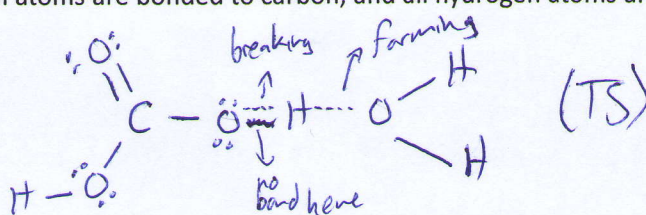 atoms are bonded to carbon, and all hydrogen atoms
breaking
forming
O
H
C – O H O (TS)
H – O
H
no
bond here